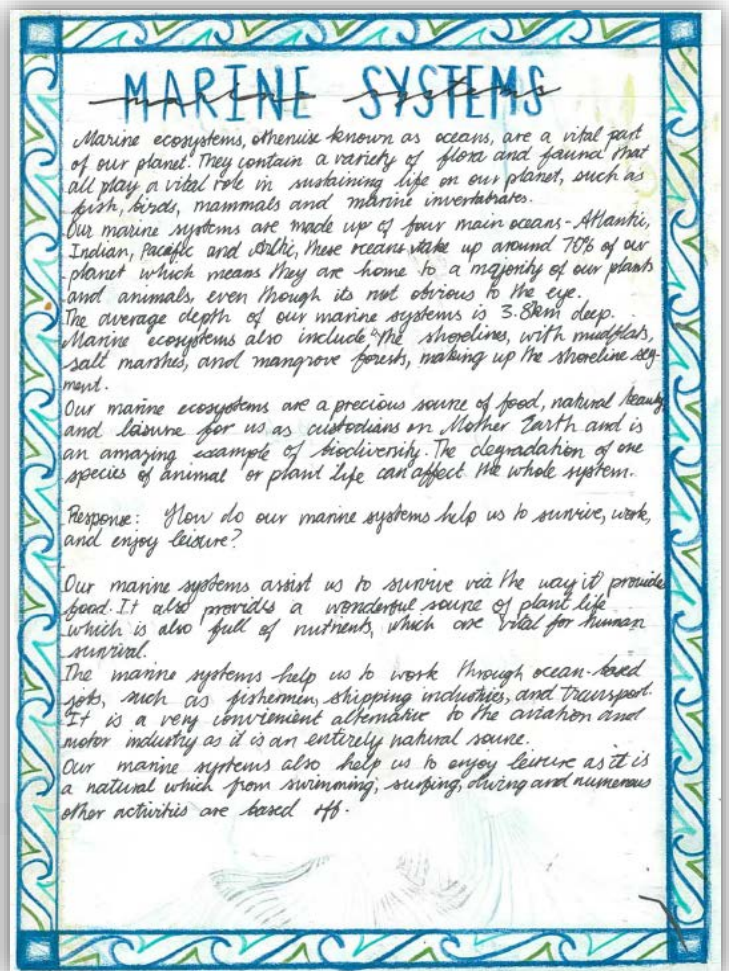 MARINE SYSTEMS
marine systems
Marine ecosystems, otherwise known as oceans, are a vital part
of our planet. They contain a variety of flora and fauna that
all play a vital role in sustaining life on our planet, such as
fish, birds, mammals and marine invertabrates.
Our marine systems are made up of four main oceans - Atlantic,
Indian, Pacific and Artic, these oceans take up around 70% of our
planet which means they are home to a majority of our plants
and animals, even though its not obvious to the eye.
The average depth of our marine systems is 3.8km deep.
Marine ecosystems also include the shorelines, with mudflats,
salt marshes, and mangrove forests, making up the shoreline seg-
ment.
Our marine ecosystems are a precious source of food, natural beauty,
and leisure for us as custodians on Mother Earth and is
an amazing example of biodiversity. The degradation of one
species of animal or plant life can affect the whole system.
Response: How do our marine systems help us to survive, work,
and enjoy leisure?
Our marine systems assist us to survive via the way it provide
food. It also provides a wonderful source of plant life
which is also full of nutrients, which are vital for human
survival.
The marine systems help us to work through ocean-based
jobs, such as fishermen, shipping industries, and transport.
It is a very convienient alternative to the aviation and
motor industry as it is an entirely natural source.
Our marine systems also help us to enjoy leisure as it is
a natural which from swimming, surfing, diving and numerous
other activities are based off.